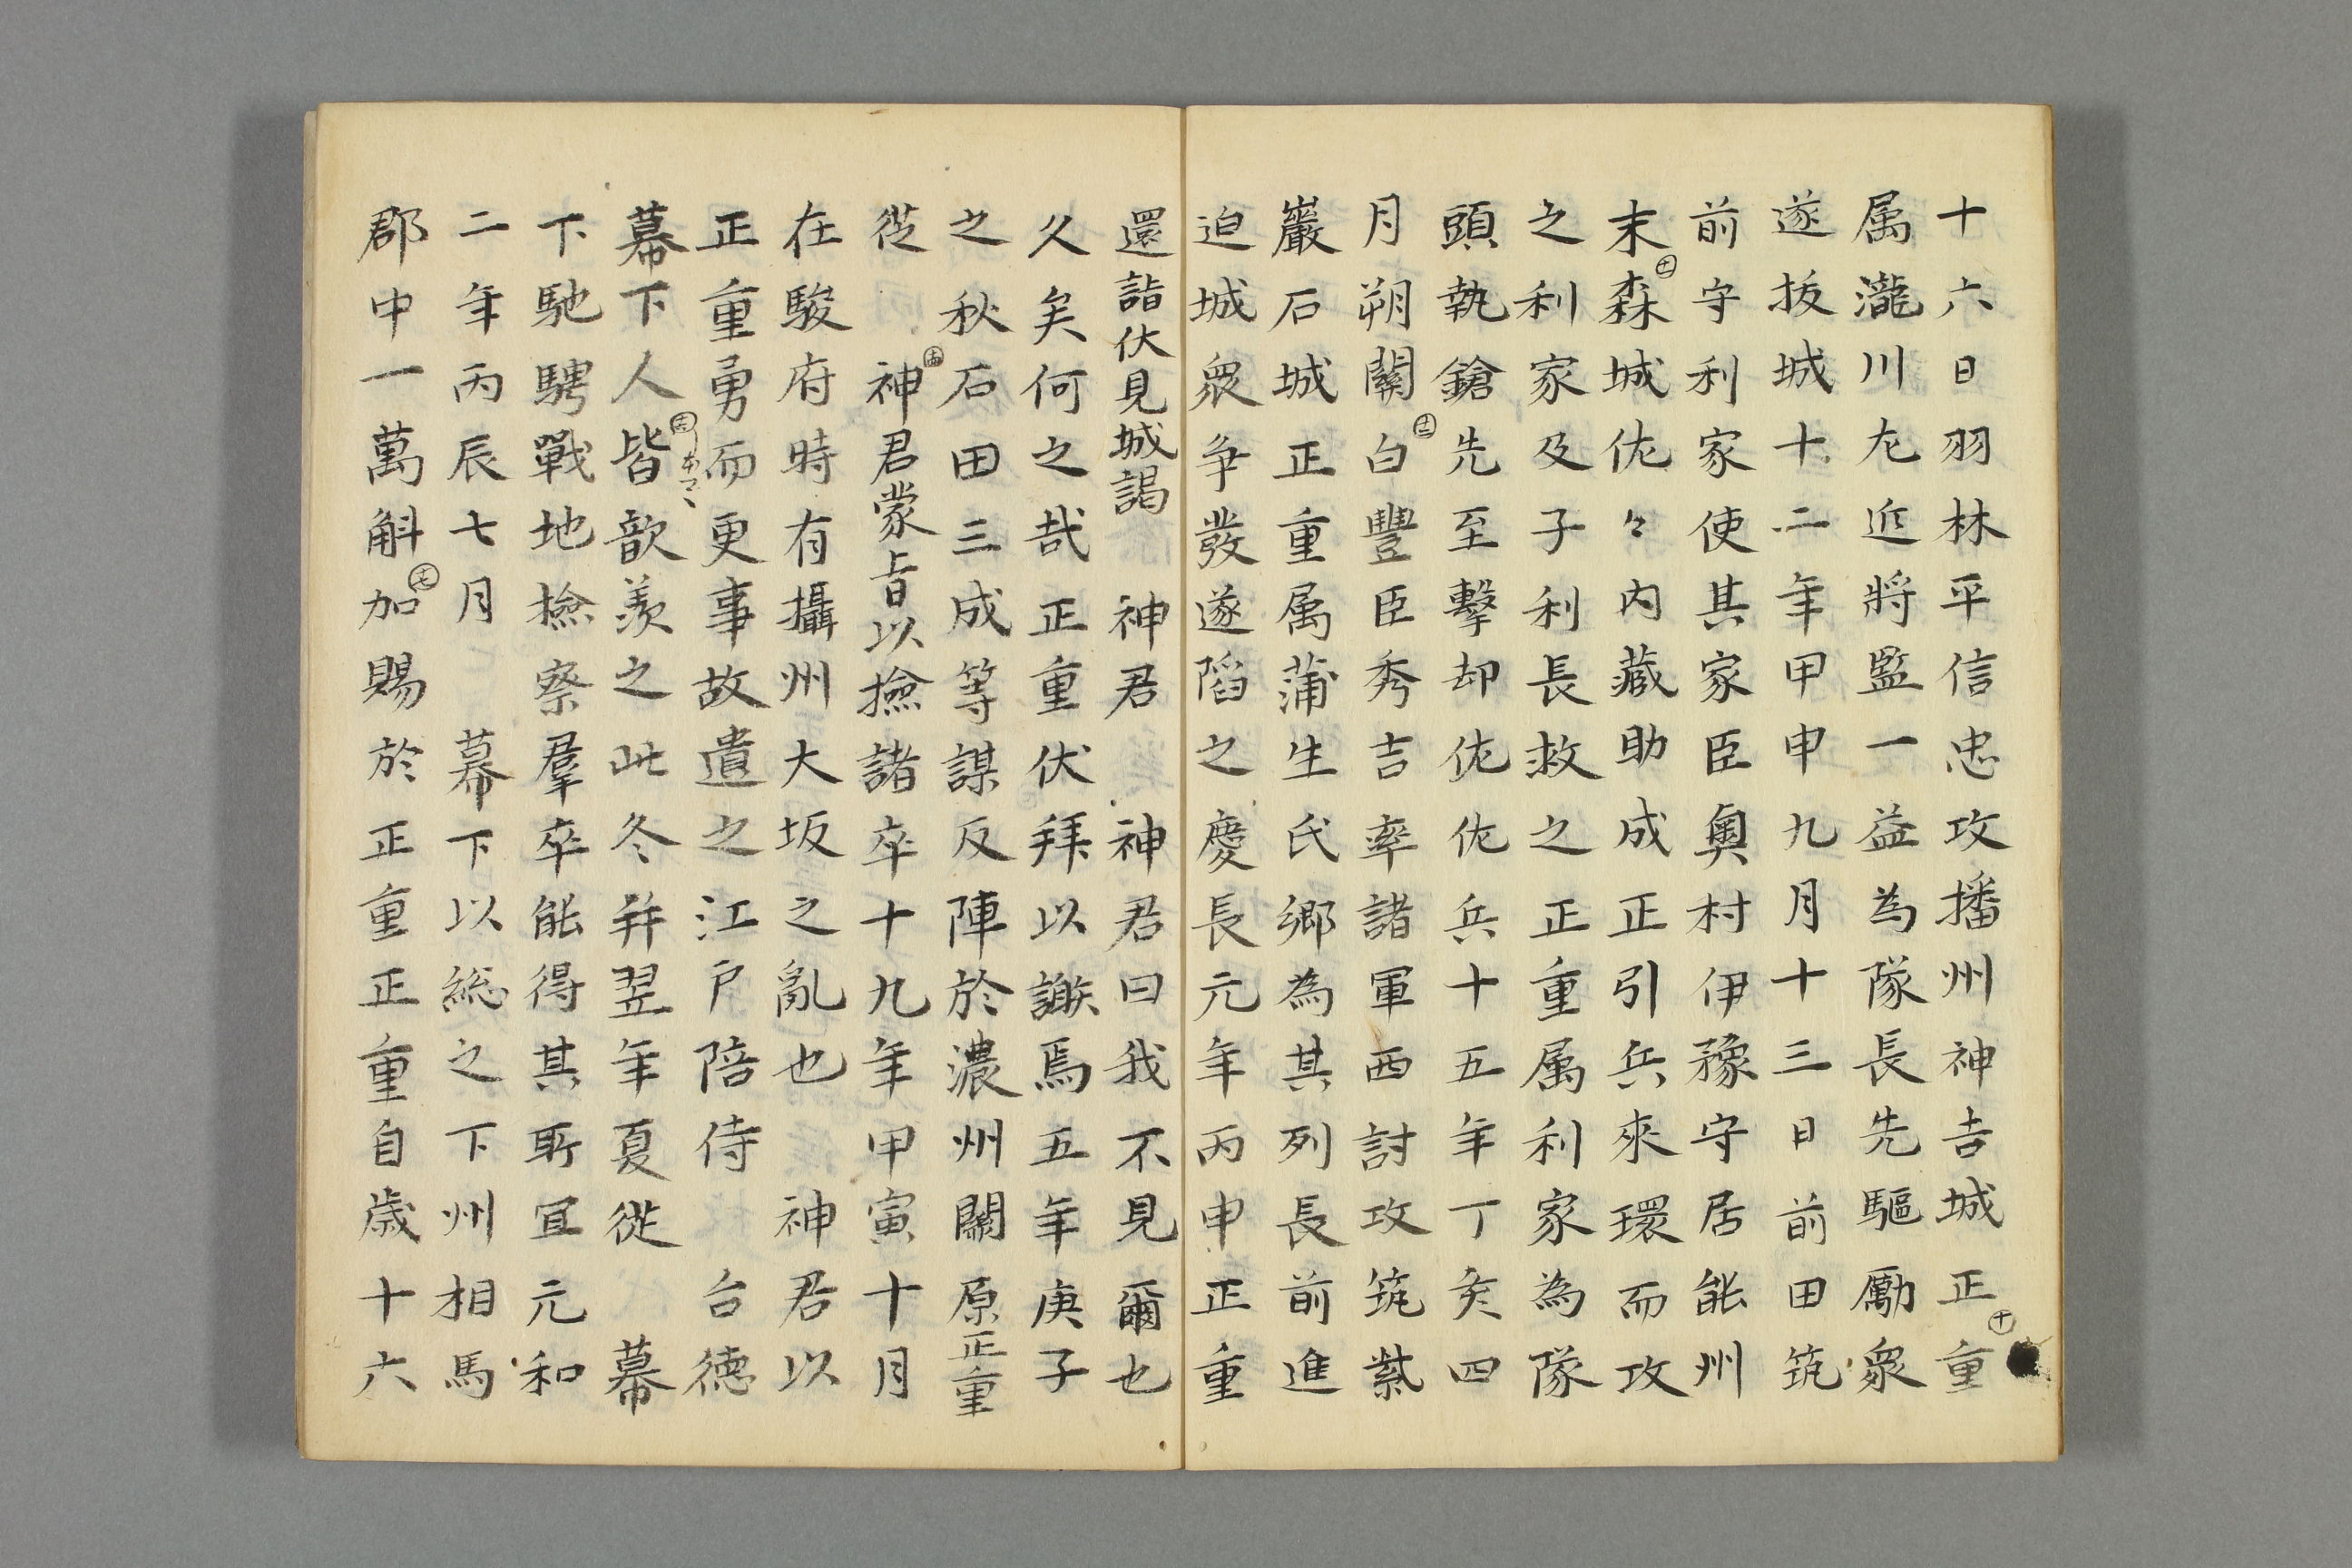 十六日羽林平信忠攻播州神吉城正重
属瀧川左近將監一益為隊長先驅勵衆
遂拔城十二年甲申九月十三日前田筑
前守利家使其家臣奧村伊豫守居能州
末森城佐々内藏助成正引兵來環而攻
之利家及子利長救之正重属利家為隊
頭執鎗先至擊却佐佐兵十五年丁亥四
月朔關白豐臣秀吉率諸軍西討攻筑紫
巖石城正重属蒲生氏鄉為其列長前進
迫城衆争發遂陷之慶長元年丙申正重
還詣伏見城謁　神君　神君曰我不見爾也
久矣何之哉正重伏拜以謝焉五年庚子
之秋石田三成等謀反陣於濃州關原正重
從　神君蒙台旨以撿諸卒十九年甲寅十月
在駿府時有攝州大坂之亂也　神君以
正重勇而更事故遺之江戶陪侍　台德
幕下人皆歆羨之此冬并翌年夏從　幕
下馳騁戰地撿察羣卒能得其所宜元和
二年丙辰七月　幕下以総之下州相馬
郡中一萬斛加賜於正重正重自歲十六